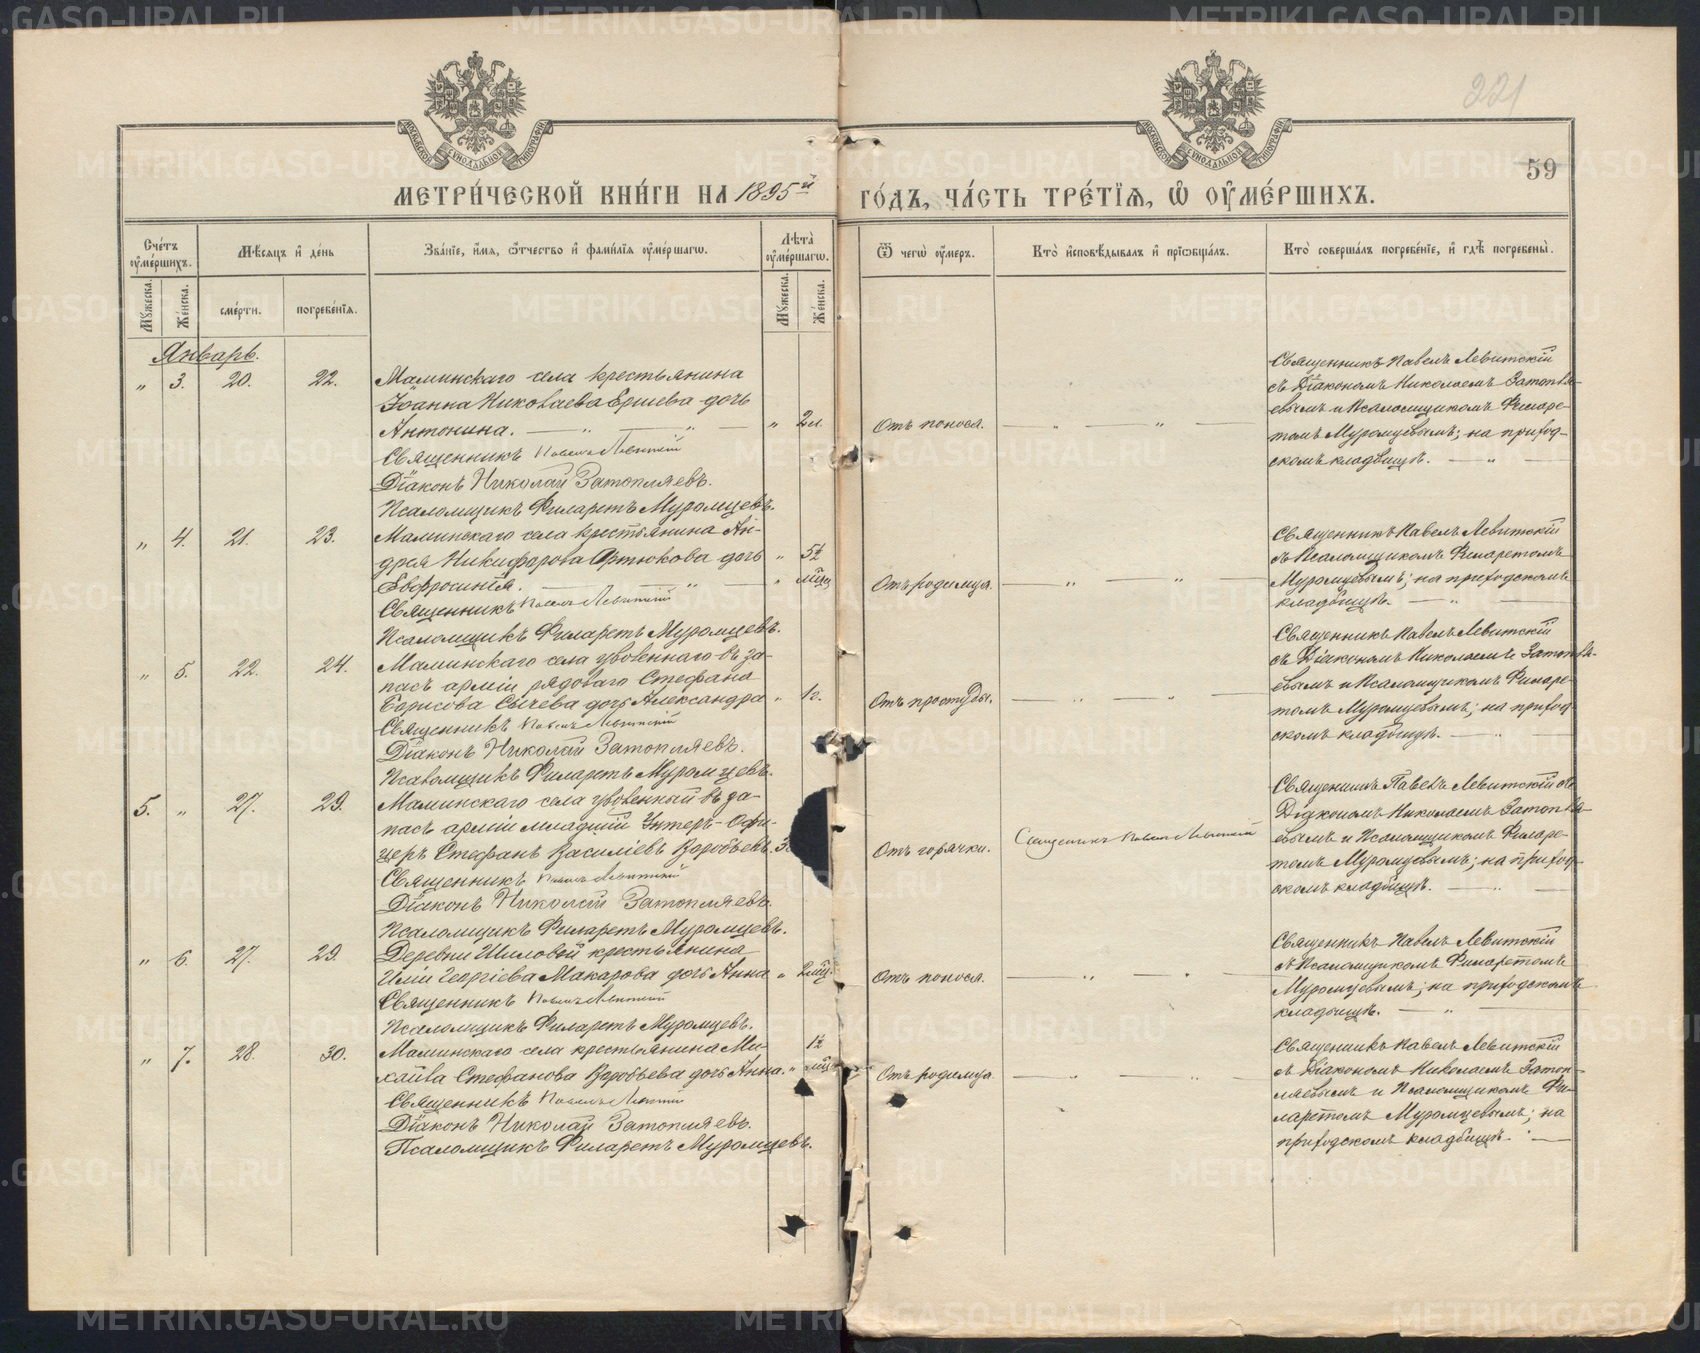 221
59
МЕТРИЧЕСКОЙ КНИГИ НА 1895й ГОДЪ, ЧАСТЬ ТРЕТІЯ, Ѡ ОУМЕРШИХЪ.
Счетъ оумершихъ.
Мѣсяцъ и день
Званіе, имя, ѿчество и фамилія оумершагѡ.
Лѣта оумершагѡ.
Ѿ чегѡ оумеръ.
Кто исповѣдывалъ и пріѡбщалъ.
Кто совершалъ погребеніе, и гдѣ погребены.
Мужеска.
Женска.
смерти.
погребенія.
Мужеска.
Женска.
Январь.
" 3. 20. 22.
Маминскаго села крестьянина
Іоанна Николаева Ершева дочь
Антонина. — " — " —
" 2 н. Отъ поноса. — " — " —
Священникъ Павелъ Левитскій
Діаконъ Николай Затопляевъ.
Псаломщикъ Филаретъ Муромцевъ.
Священникъ Павелъ Левитскій
съ Діакономъ Николаемъ Затопля-
евымъ и Псаломщикомъ Филаре-
томъ Муромцевымъ; на приход-
скомъ кладбищѣ. — " —
" 4. 21. 23.
Маминскаго села крестьянина Ан-
дрея Никифорова Артюкова дочь
Евфросинія. — " —
" 5½ мѣц. Отъ родимца. — " — " —
Священникъ Павелъ Левитскій
Псаломщикъ Филаретъ Муромцевъ.
Священникъ Павелъ Левитскій
съ Псаломщикомъ Филаретомъ
Муромцевымъ; на приходскомъ
кладбищѣ. — " —
" 5. 22. 24.
Маминскаго села уволеннаго въ за-
пасъ арміи рядоваго Стефана
Борисова Сычева дочь Александра
" 1 г. Отъ простуды. — " — " —
Священникъ Павелъ Левитскій
Діаконъ Николай Затопляевъ.
Псаломщикъ Филаретъ Муромцевъ.
Священникъ Павелъ Левитскій
съ Діакономъ Николаемъ Затопля-
евымъ и Псаломщикомъ Филаре-
томъ Муромцевымъ; на приход-
скомъ кладбищѣ. — " —
5. " 27. 29.
Маминскаго села уволенный въ за-
пасъ арміи младшій Унтеръ-Офи-
церъ Стефанъ Василіевъ Воробьевъ.
Отъ горячки. Священникъ Павелъ Левитскій
Священникъ Павелъ Левитскій
Діаконъ Николай Затопляевъ.
Псаломщикъ Филаретъ Муромцевъ.
Священникъ Павелъ Левитскій съ
Діакономъ Николаемъ Затопля-
евымъ и Псаломщикомъ Филаре-
томъ Муромцевымъ; на приход-
скомъ кладбищѣ. — " —
" 6. 27. 29.
Деревни Шиловой крестьянина
Иліи Георгіева Макарова дочь Анна
" 2 мѣц. Отъ поноса. — " — " —
Священникъ Павелъ Левитскій
Псаломщикъ Филаретъ Муромцевъ.
Священникъ Павелъ Левитскій
съ Псаломщикомъ Филаретомъ
Муромцевымъ; на приходскомъ
кладбищѣ. — " —
" 7. 28. 30.
Маминскаго села крестьянина Ми-
хаила Стефанова Воробьева дочь Анна.
" 1½ мѣц. Отъ родимца — " — " —
Священникъ Павелъ Левитскій
Діаконъ Николай Затопляевъ.
Псаломщикъ Филаретъ Муромцевъ.
Священникъ Павелъ Левитскій
съ Діакономъ Николаемъ Затоп-
ляевымъ и Псаломщикомъ Фи-
ларетомъ Муромцевымъ; на
приходскомъ кладбищѣ. —
METRIKI.GASO-URAL.RU